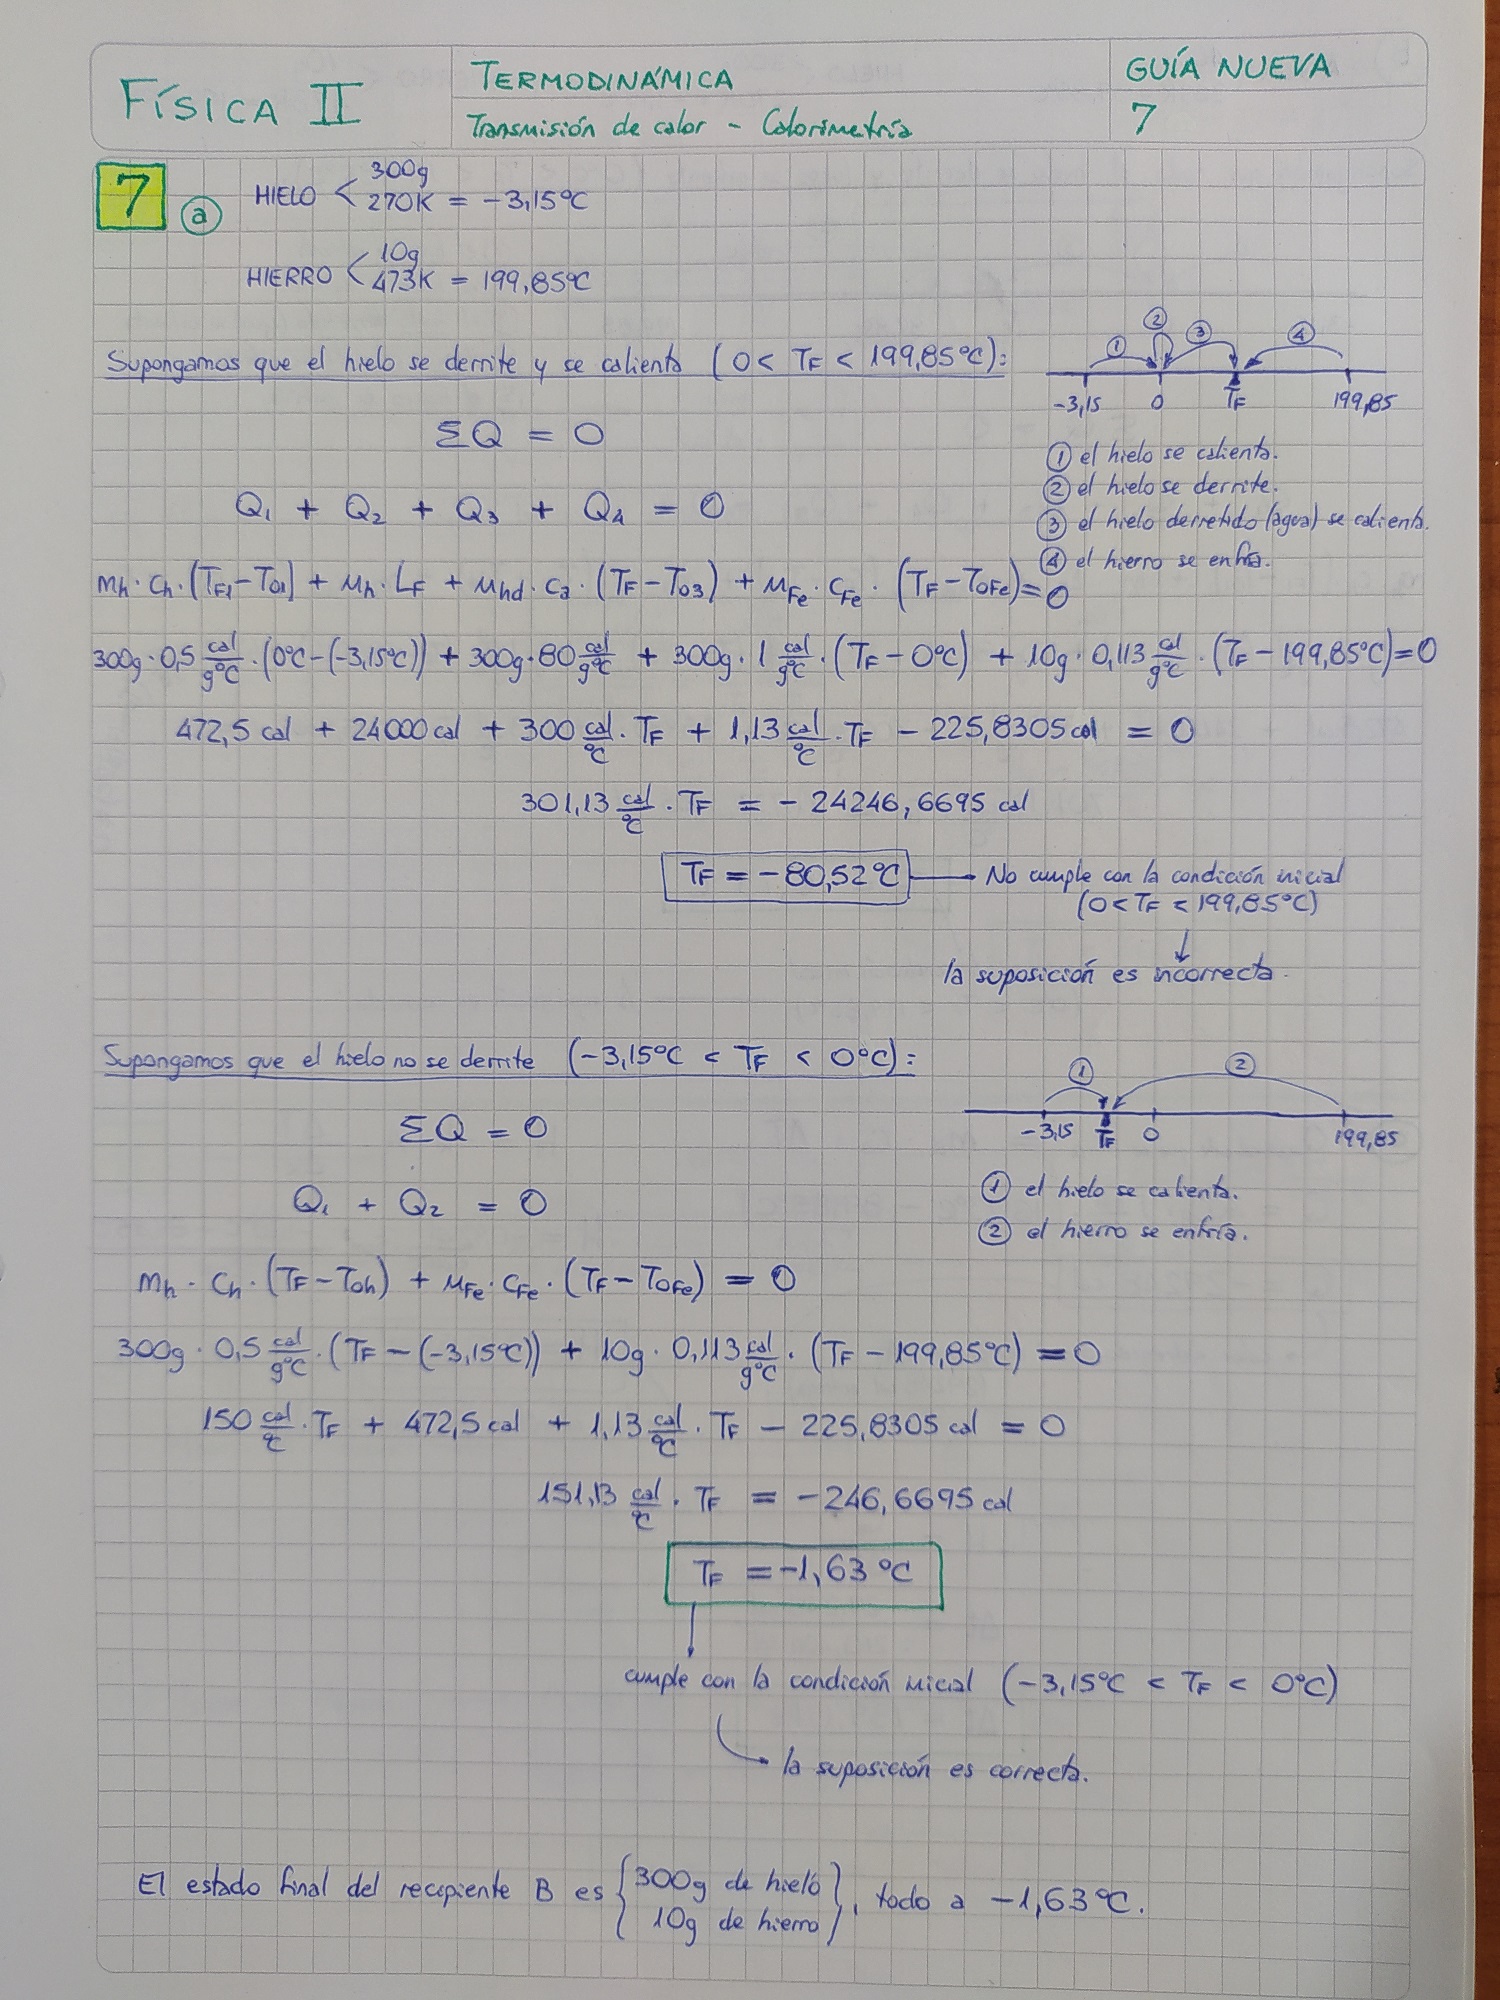 FÍSICA II
TERMODINÁMICA
Transmisión de calor - Calorimetría
GUÍA NUEVA
7
7 a HIELO < 300g
270K = -3,15°C
HIERRO < 10g
473K = 199,85°C
Supongamos que el hielo se derrite y se calienta (0 < TF < 199,85°C):
1 2 3 4
-3,15 0 TF 199,85
ΣQ = 0
1 el hielo se calienta.
2 el hielo se derrite.
3 el hielo derretido (agua) se calienta.
4 el hierro se enfría.
Q1 + Q2 + Q3 + Q4 = 0
mh · Ch · (TF1 - T01) + mh · LF + mhd · ca · (TF - T03) + mFe · cFe · (TF - T0Fe) = 0
300g · 0,5 cal/g°C · (0°C - (-3,15°C)) + 300g · 80 cal/g°C + 300g · 1 cal/g°C · (TF - 0°C) + 10g · 0,113 cal/g°C · (TF - 199,85°C) = 0
472,5 cal + 24000 cal + 300 cal/°C · TF + 1,13 cal/°C · TF - 225,8305 cal = 0
301,13 cal/°C · TF = - 24246,6695 cal
TF = -80,52°C → No cumple con la condición inicial
(0 < TF < 199,85°C)
↓
la suposición es incorrecta.
Supongamos que el hielo no se derrite (-3,15°C < TF < 0°C):
1 2
-3,15 TF 0 199,85
ΣQ = 0
Q1 + Q2 = 0
1 el hielo se calienta.
2 el hierro se enfría.
mh · Ch · (TF - T0h) + mFe · cFe · (TF - T0Fe) = 0
300g · 0,5 cal/g°C · (TF - (-3,15°C)) + 10g · 0,113 cal/g°C · (TF - 199,85°C) = 0
150 cal/°C · TF + 472,5 cal + 1,13 cal/°C · TF - 225,8305 cal = 0
151,13 cal/°C · TF = -246,6695 cal
TF = -1,63 °C
cumple con la condición inicial (-3,15°C < TF < 0°C)
la suposición es correcta.
El estado final del recipiente B es {300g de hielo
10g de hierro}, todo a -1,63°C.